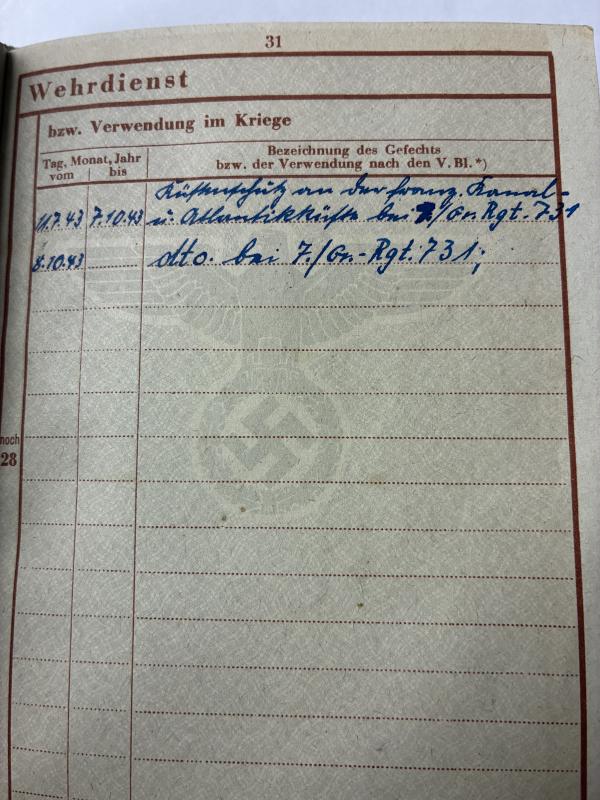 31
Wehrdienst
bzw. Verwendung im Kriege
Tag, Monat, Jahr
vom bis
Bezeichnung des Gefechts
bzw. der Verwendung nach den V. Bl. *)
Küstenschutz an der franz. Kanal-
11.7.43 7.10.43 u. Atlantikküste bei /Gr. Rgt. 731
8.10.43 dto. bei 7./Gr.-Rgt. 731;
noch
28